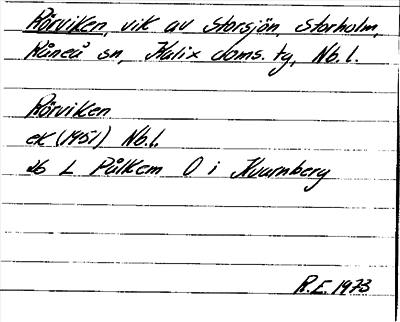 Rörviken, vik av Storsjön, Storholm,
Råneå sn, Kalix doms. tg, Nb. l.
Rörviken
ek (1951) Nb.l.
26 L Pålkem O i Kvarnberg
R.E. 1973